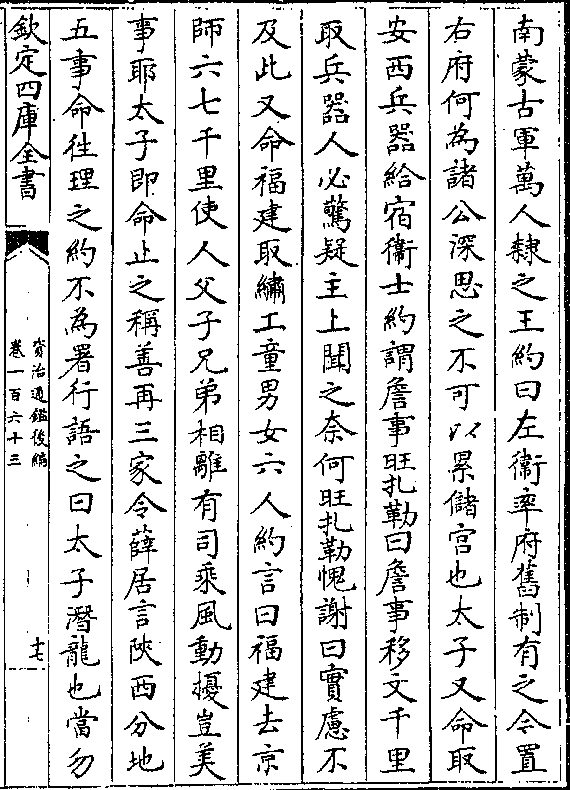 南蒙古軍萬人隸之王約曰左衞率府舊制有之今置
右府何為諸公深思之不可以累儲宫也太子又命取
安西兵器給宿衞士約謂詹事旺扎勒曰詹事移文千里
取兵器人必驚疑主上聞之奈何旺扎勒愧謝曰實慮不
及此又命福建取繡工童男女六人約言曰福建去京
師六七千里使人父子兄弟相離有司乘風動擾豈美
事耶太子即命止之稱善再三家令薛居言陜西分地
五事命往理之約不為署行語之曰太子潛龍也當勿
欽定四庫全書
資治通鑑後編
卷一百六十三
十七